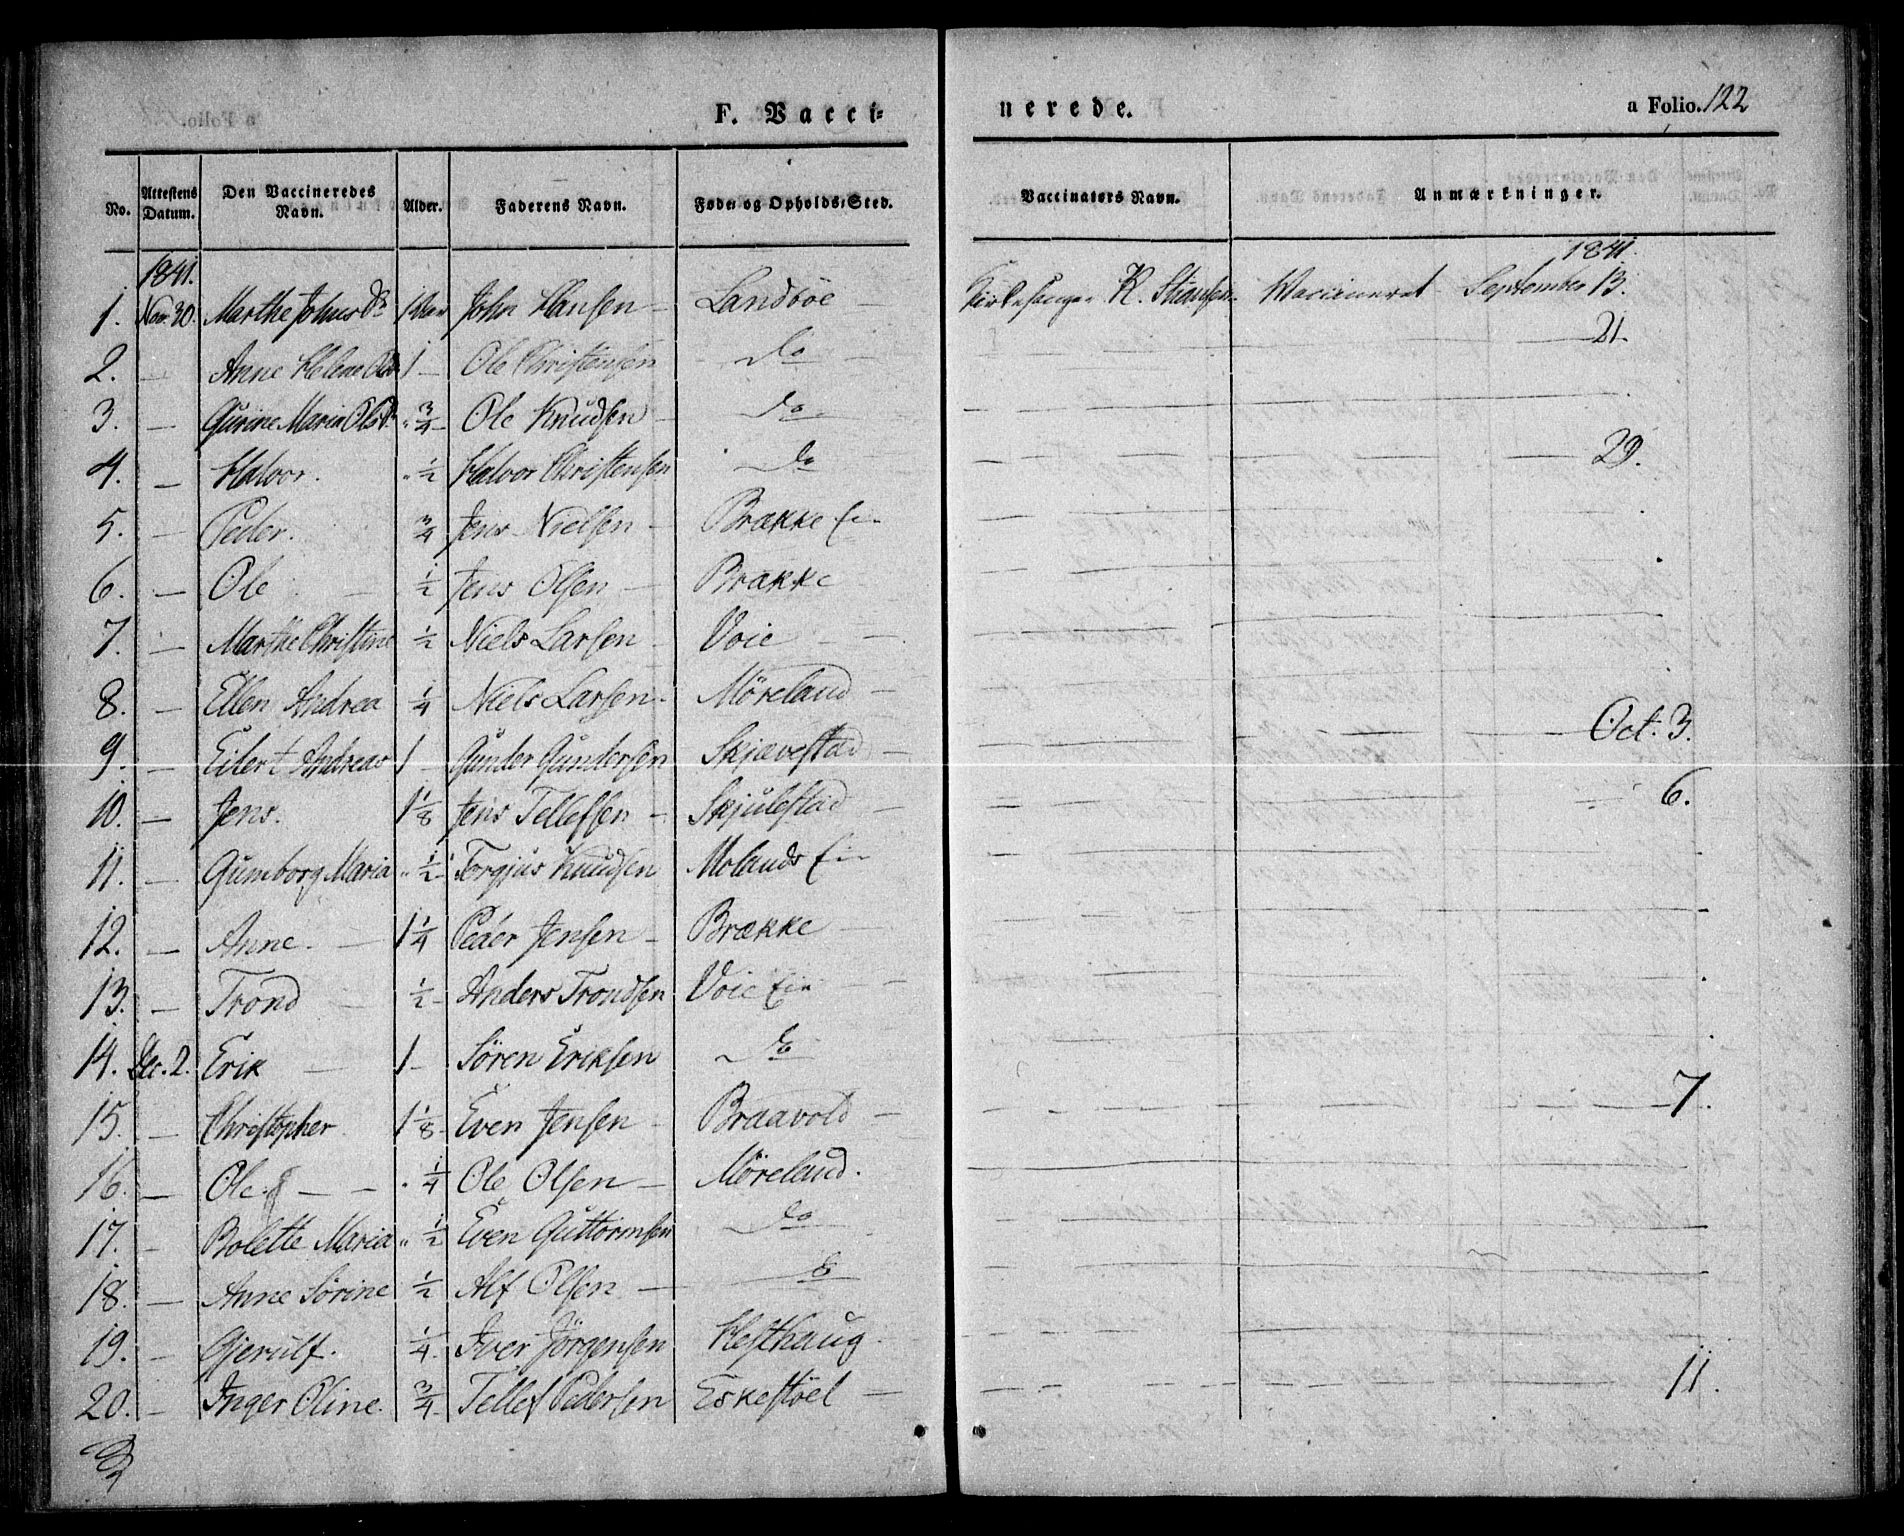 F. Vacci- nerede. a Folio. 122
No. Attestens Datum. Den Vaccineredes Navn. Alder. Faderens Navn. Føde- og Opholds-Sted. Vaccinators Navn. Anmærkninger.
1841. 1841.
1. Nov. 30. Marthe Johns Dr 1 Aar John Hansen - Landböe - Kirkesanger K. Stiansen. Vaccineret September 13.
2. — Anne Helene 1 - Ole Christensen do - 21.
3. — Gurine Maria Ols Dr " 3/4 - Ole Knudsen - do
4. — Halvor. " 1/2 Halvor Christensen do 29.
5. — Peder. 3/4 Jens Nielsen - Brække Ei-
6. — Ole 1/2 Jens Olsen — Brække
7. — Marthe Christine 1/2 Niels Larsen - Voie -
8. — Ellen Andrea 1/4 Niels Larsen - Möreland -
9. — Eilert Andreas 1 - Gunder Gundersen Skjævestad - Oct. 3.
10. — Jens. 1 1/8 Jens Tellefsen - Skjulestad - 6.
11. — Gumborg Maria " 1/2 - Torgjus Knudsen Molands Ei-
12. — Anne. — 1 1/4 Peder Jensen - Brække -
13. — Trond 1/2 - Anders Trondsen Voie Ei- -
14. Dec. 2. Erik — 1 - Sören Eriksen do
15. — Christopher 1 1/8 - Even Jensen - Braavold - 7.
16. — Ole. — - 1/4 Ole Olsen — Möreland.
17. - Bolette Maria " 1/2 Even Guttormsen do
18. — Anne Sörine 1/2 Alf Olsen — do
19. - Gjerulf. 1/4 - Iver Jörgensen Hesthaug -
20. - Inger Oline. 3/4 - Tellef Pedersen Eskestöel — 11.